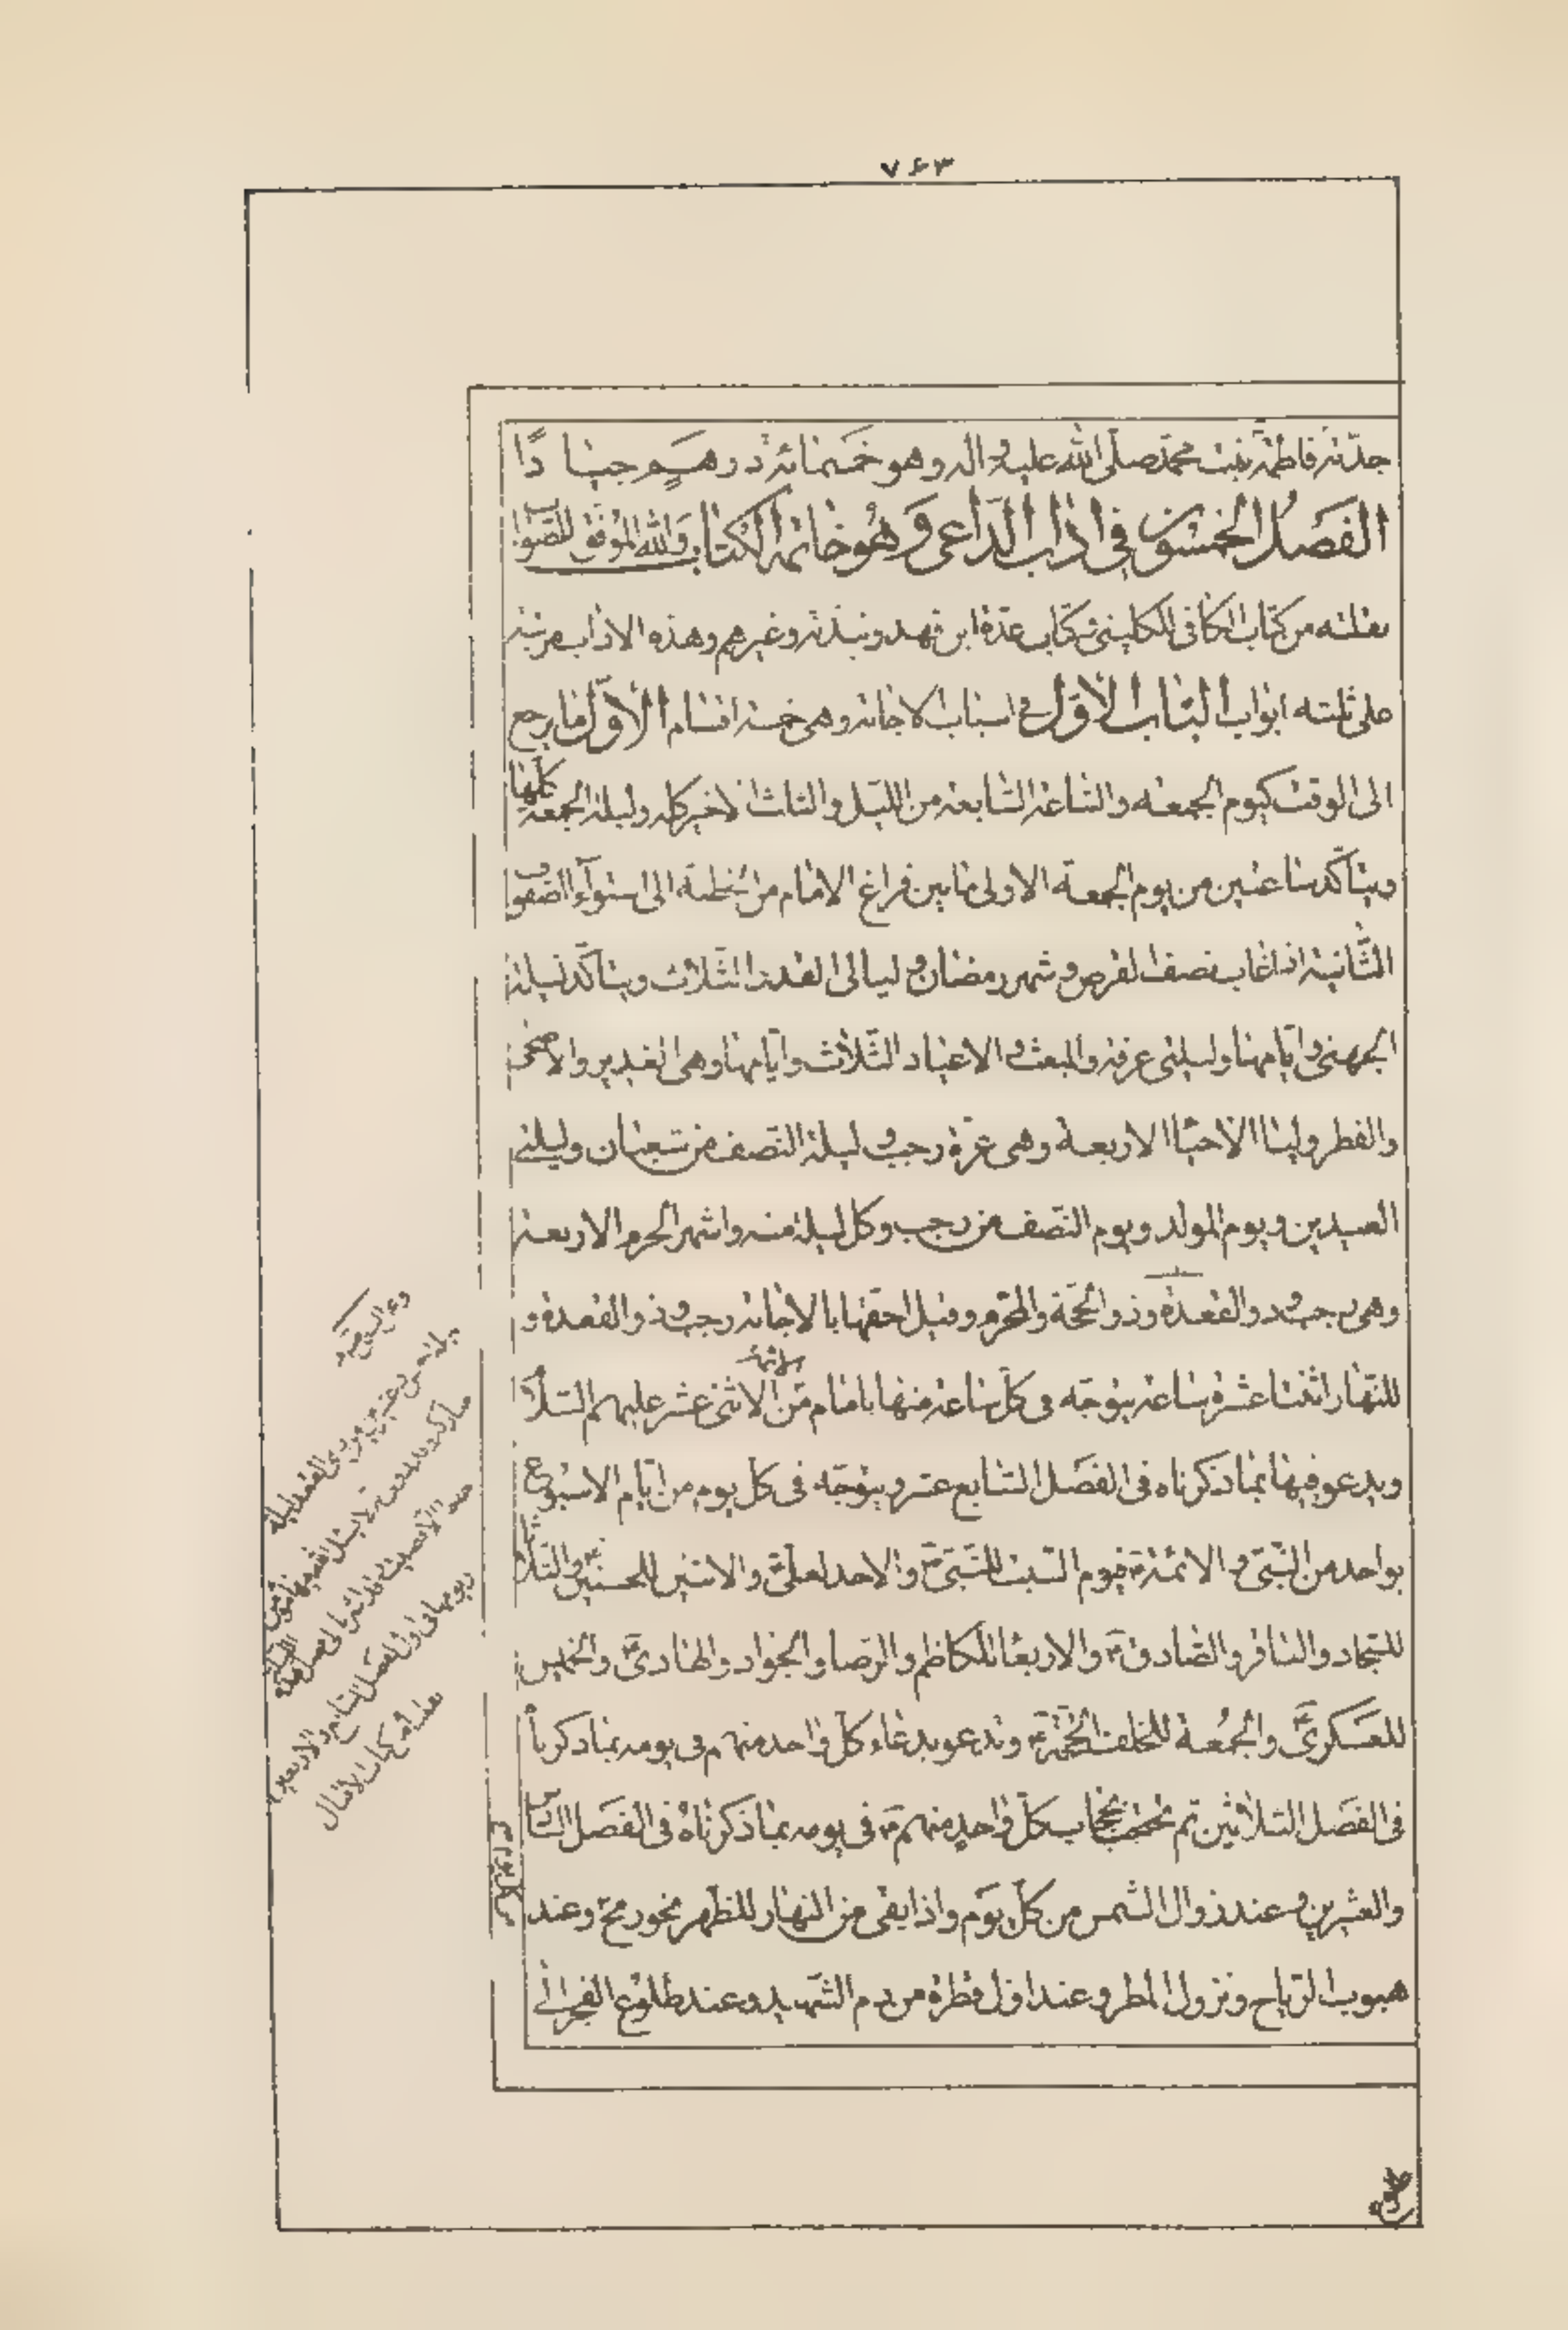 ۷۶۳
جدّته فاطمة بنت محمّد صلّى الله عليه و اله وهو خمسمائة درهم جيادًا
الفصل الخمسون في اداب الداعي وهو خاتمة الكتاب والله الموفق للصواب
نقلته من كتاب الكافى للكليني و كتاب عدة ابن فهد ونبذته وغيرهم وهذه الاداب مرتبة
على ثلثه ابواب الباب الاوّل في اسباب الاجابة وهي خمسة اقسام الاوّل ما يرجع
الى الوقت كيوم الجمعه والساعة السابعة من الليل والثلث الاخير كله وليلة الجمعة كلها
ويتأكد ساعتين من يوم الجمعة الاولى ما بين فراغ الامام من الخطبة الى استواء الصفوف
الثانية اذا غاب نصف القرص و شهر رمضان و ليالى القدر الثلاث ويتأكد ليلة
الجهني و ايامها وليلتي عرفة والمبعث و الاعياد الثلاث وايامها وهي الغدير والاضحى
والفطر وليالى الاحياء الاربعة وهي غرة رجب و ليلة النصف من شعبان وليلتي
العيدين ويوم المولد ويوم النصف من رجب وكل ليلة منه واشهر الحرم الاربعة
وهي رجب و ذو القعدة وذو الحجة والمحرم وقيل احقها بالاجابة رجب و ذو القعدة و
للنهار اثنتا عشرة ساعة يتوجه في كل ساعة منها بامام من الاثنى عشر عليهم السلام
ويدعو فيها بما ذكرناه في الفصل السابع عشر ويتوجه في كل يوم من ايام الاسبوع
بواحد من النبيّ و الائمة فيوم السبت للنبيّ والاحد لعليّ والاثنين للحسنين والثلاثا
للسجاد والباقر والصادق والاربعا للكاظم والرضا والجواد والهادي والخميس
للعسكري والجمعة للخلف الحجة وتدعو بدعاء كل واحد منهم في يومه بما ذكرناه
في الفصل الثلاثين ثم تحتجب بحجاب كل واحد منهم في يومه بما ذكرناه في الفصل السادس
والعشرين و عند زوال الشمس من كل يوم واذا بقى من النهار للظهر نحو رمح وعند
هبوب الرياح ونزول المطر وعند اول قطرة من دم الشهيد وعند طلوع الفجر الى